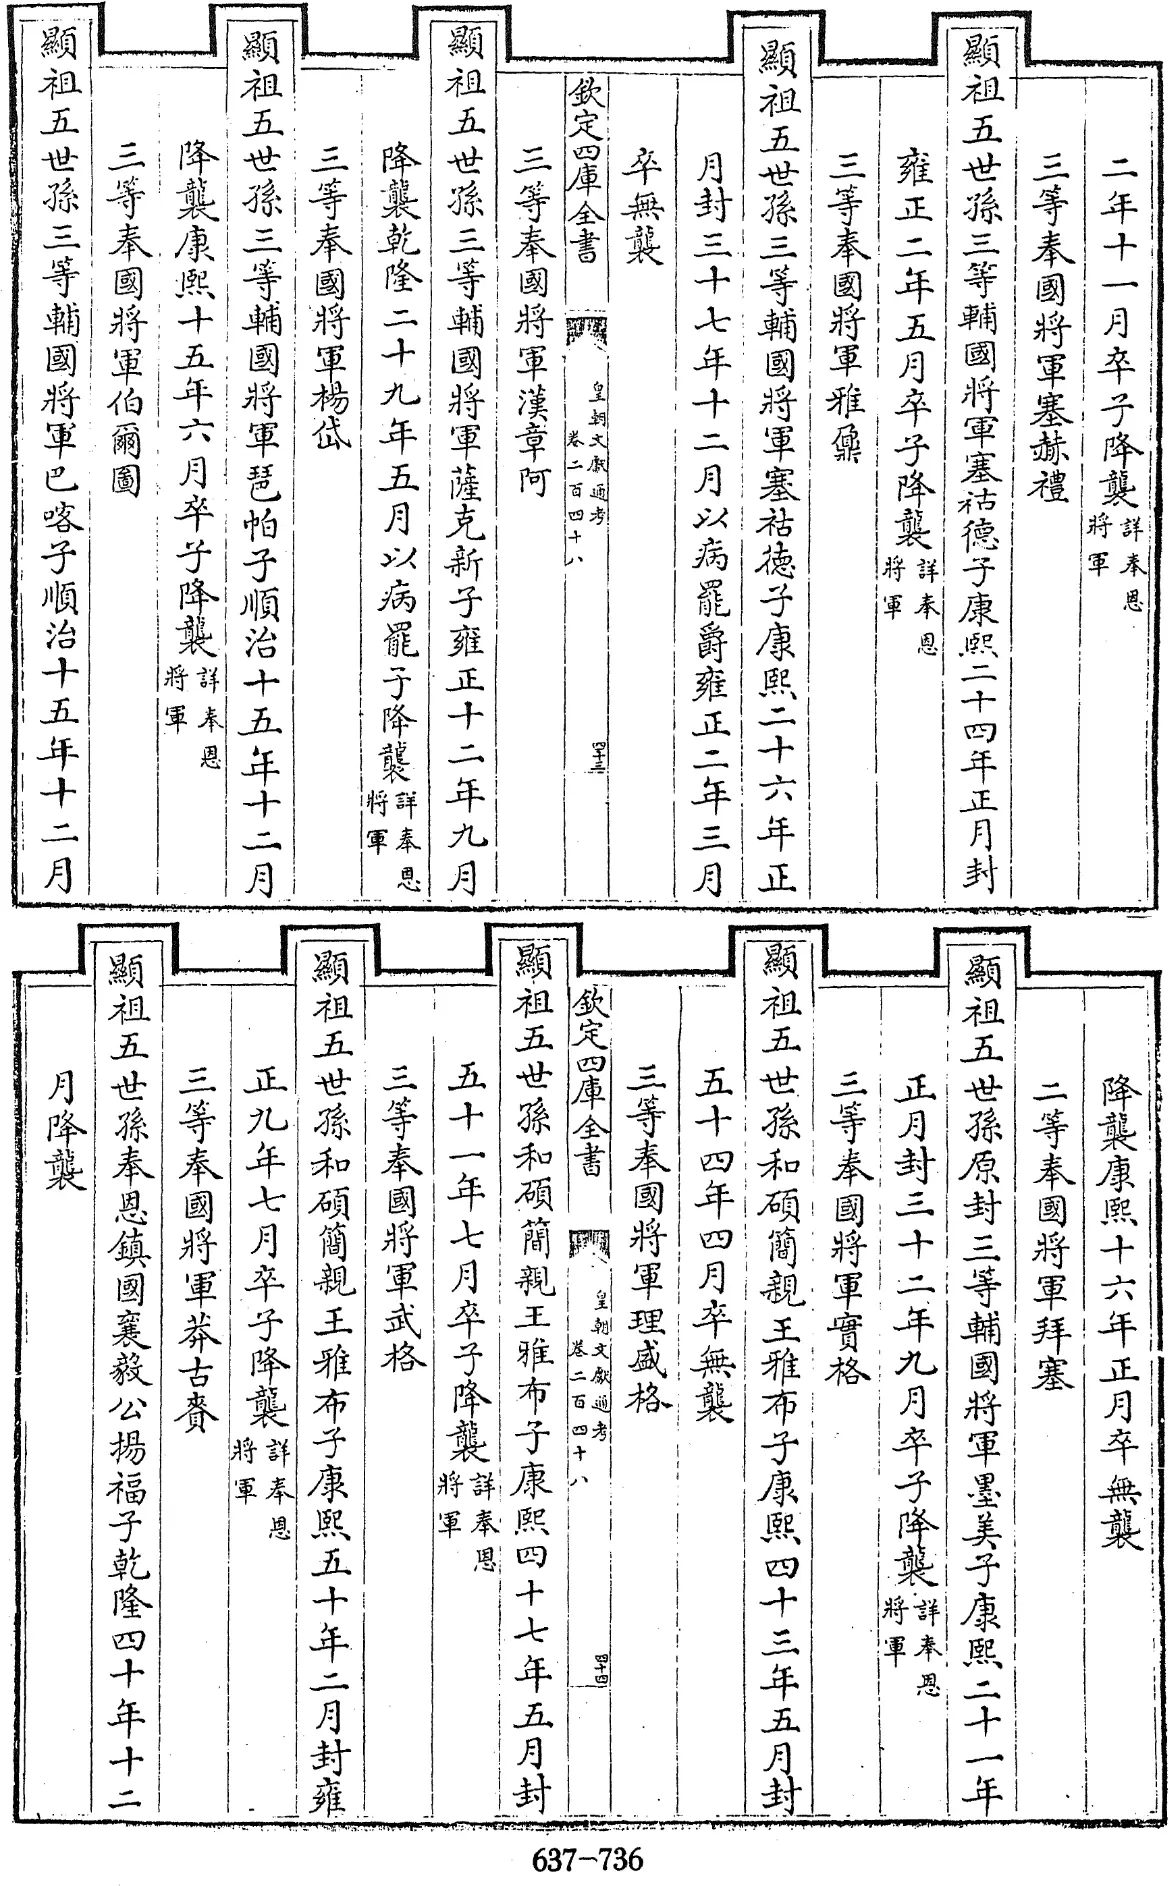 二年十一月卒子降襲詳奉恩將軍
三等奉國將軍塞赫禮
顯祖五世孫三等輔國將軍塞祜德子康熙二十四年正月封
雍正二年五月卒子降襲詳奉恩將軍
三等奉國將軍雅鼐
顯祖五世孫三等輔國將軍塞祜德子康熙二十六年正
月封三十七年十二月以病罷爵雍正二年三月
卒無襲
欽定四庫全書 皇朝文獻通考卷二百四十八 四十三
三等奉國將軍漢章阿
顯祖五世孫三等輔國將軍薩克新子雍正十二年九月
降襲乾隆二十九年五月以病罷子降襲詳奉恩將軍
三等奉國將軍楊岱
顯祖五世孫三等輔國將軍琶帕子順治十五年十二月
降襲康熙十五年六月卒子降襲詳奉恩將軍
三等奉國將軍伯爾圖
顯祖五世孫三等輔國將軍巴喀子順治十五年十二月
降襲康熙十六年正月卒無襲
二等奉國將軍拜塞
顯祖五世孫原封三等輔國將軍墨美子康熙二十一年
正月封三十二年九月卒子降襲詳奉恩將軍
三等奉國將軍實格
顯祖五世孫和碩簡親王雅布子康熙四十三年五月封
五十四年四月卒無襲
三等奉國將軍理盛格
欽定四庫全書 皇朝文獻通考卷二百四十八 四十四
顯祖五世孫和碩簡親王雅布子康熙四十七年五月封
五十一年七月卒子降襲詳奉恩將軍
三等奉國將軍武格
顯祖五世孫和碩簡親王雅布子康熙五十年二月封雍
正九年七月卒子降襲詳奉恩將軍
三等奉國將軍莽古賚
顯祖五世孫奉恩鎮國襄毅公揚福子乾隆四十年十二
月降襲
637-736